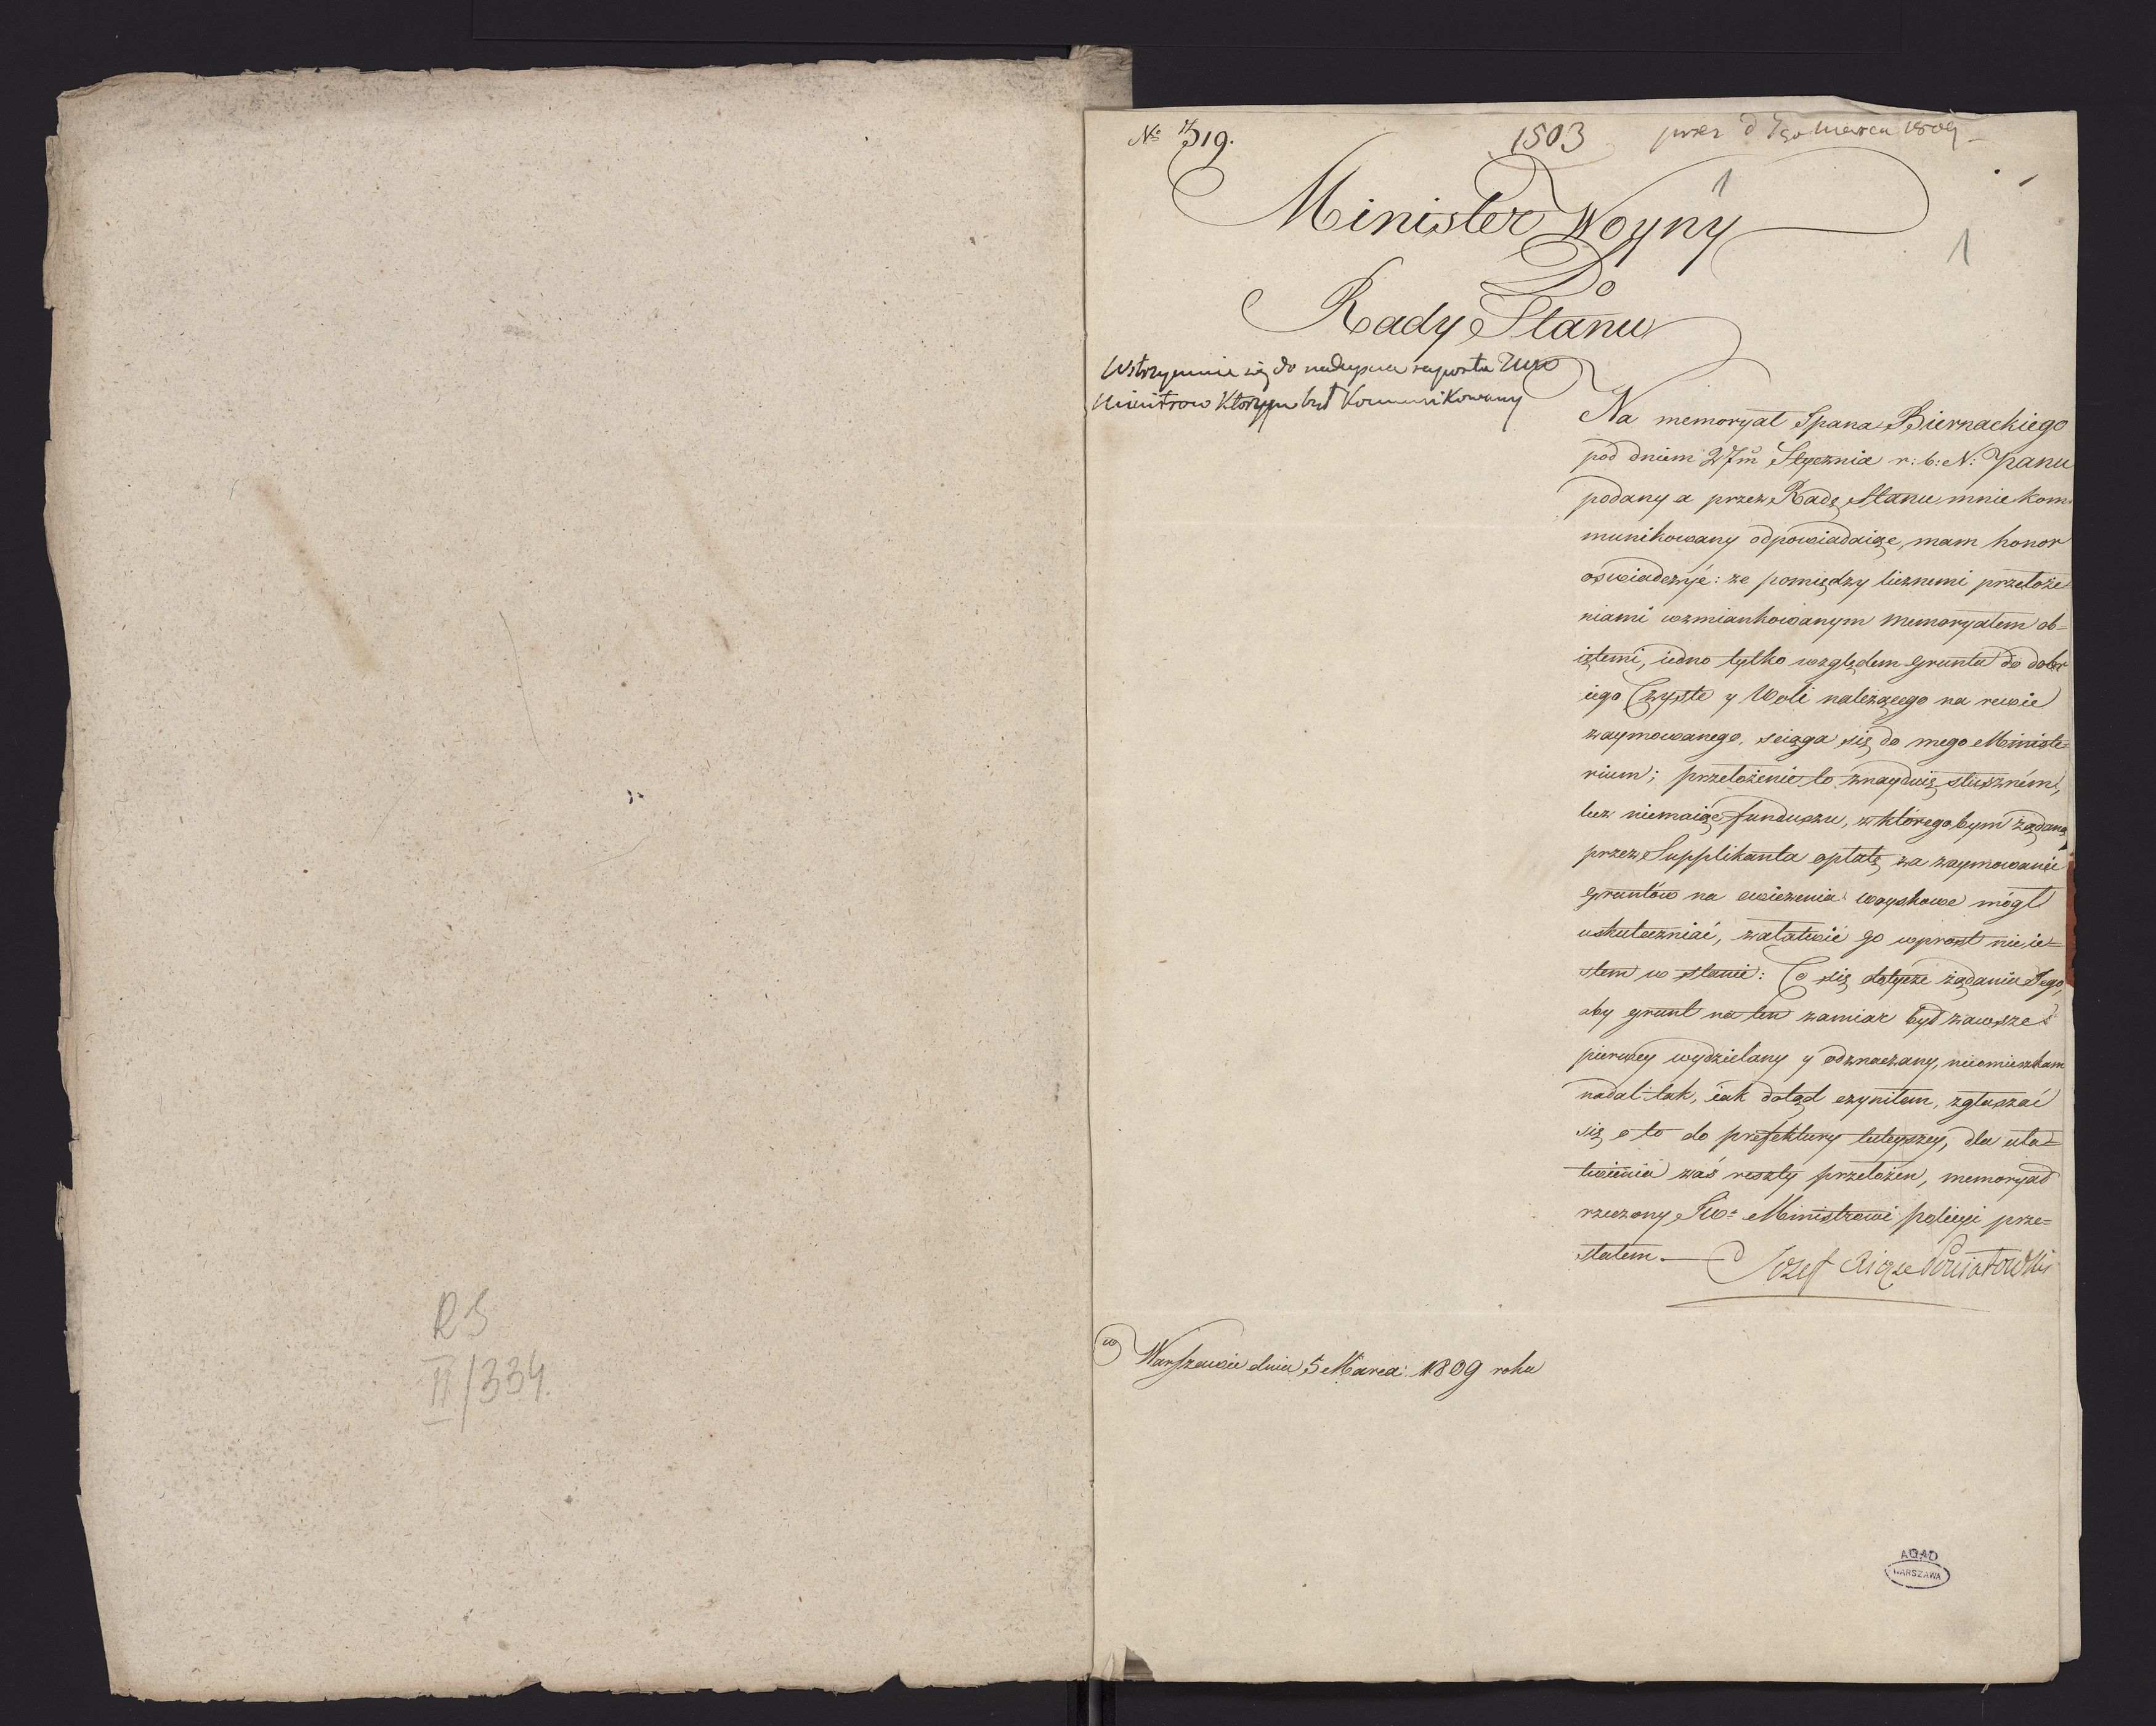 RS
II/334.
No 319.
1503
prez d 7go Marca 1809
1
Minister Woyny
1
Do
Rady Stanu
Wstrzymuie się do nadeyscia raportu
Ministrow Ktorym był Kommunikowany
Na memoryał Jpana Biernackiego
pod dniem 27m Stycznia r: b: N: Panu
podany a przez Radę Stanu mnie kom¬
munikowany odpowiadaiąc, mam honor
oswiadczyć: ze pomiędzy licznemi przełoże
niami wzmiankowanym memoryałem ob=
iętemi, iedno tylko względem gruntu do dobr
iego Czyste y Woli należącego na rewie
zaymowanego, sciąga się do mego Ministe=
rium; przełożenie to znayduię słusznem,
lecz niemaiąc funduszu, z którego bym żądaną
przez Supplikanta opłatę za zaymowanie
gruntów na cwiczenia woyskowe mógł
uskuteczniać, załatwić go wprost nie ie=
stem w stanie: Co się dotycze żądania Jego,
aby grunt na ten zamiar był zawsze
pierwey wydzielany y odznaczany, nieomieszkam
nadal tak, iak dotąd czyniłem, zgłaszać
się o to do prefektury tuteyszey, dla uła=
twienia zaś reszty przełożen, memoryał
rzeczony JW: Ministrowi policyi prze=
słałem.
Jozef Xiąze Poniatowski
w Warszawie dnia 5 Marca 1809 roku
AGAD
WARSZAWA